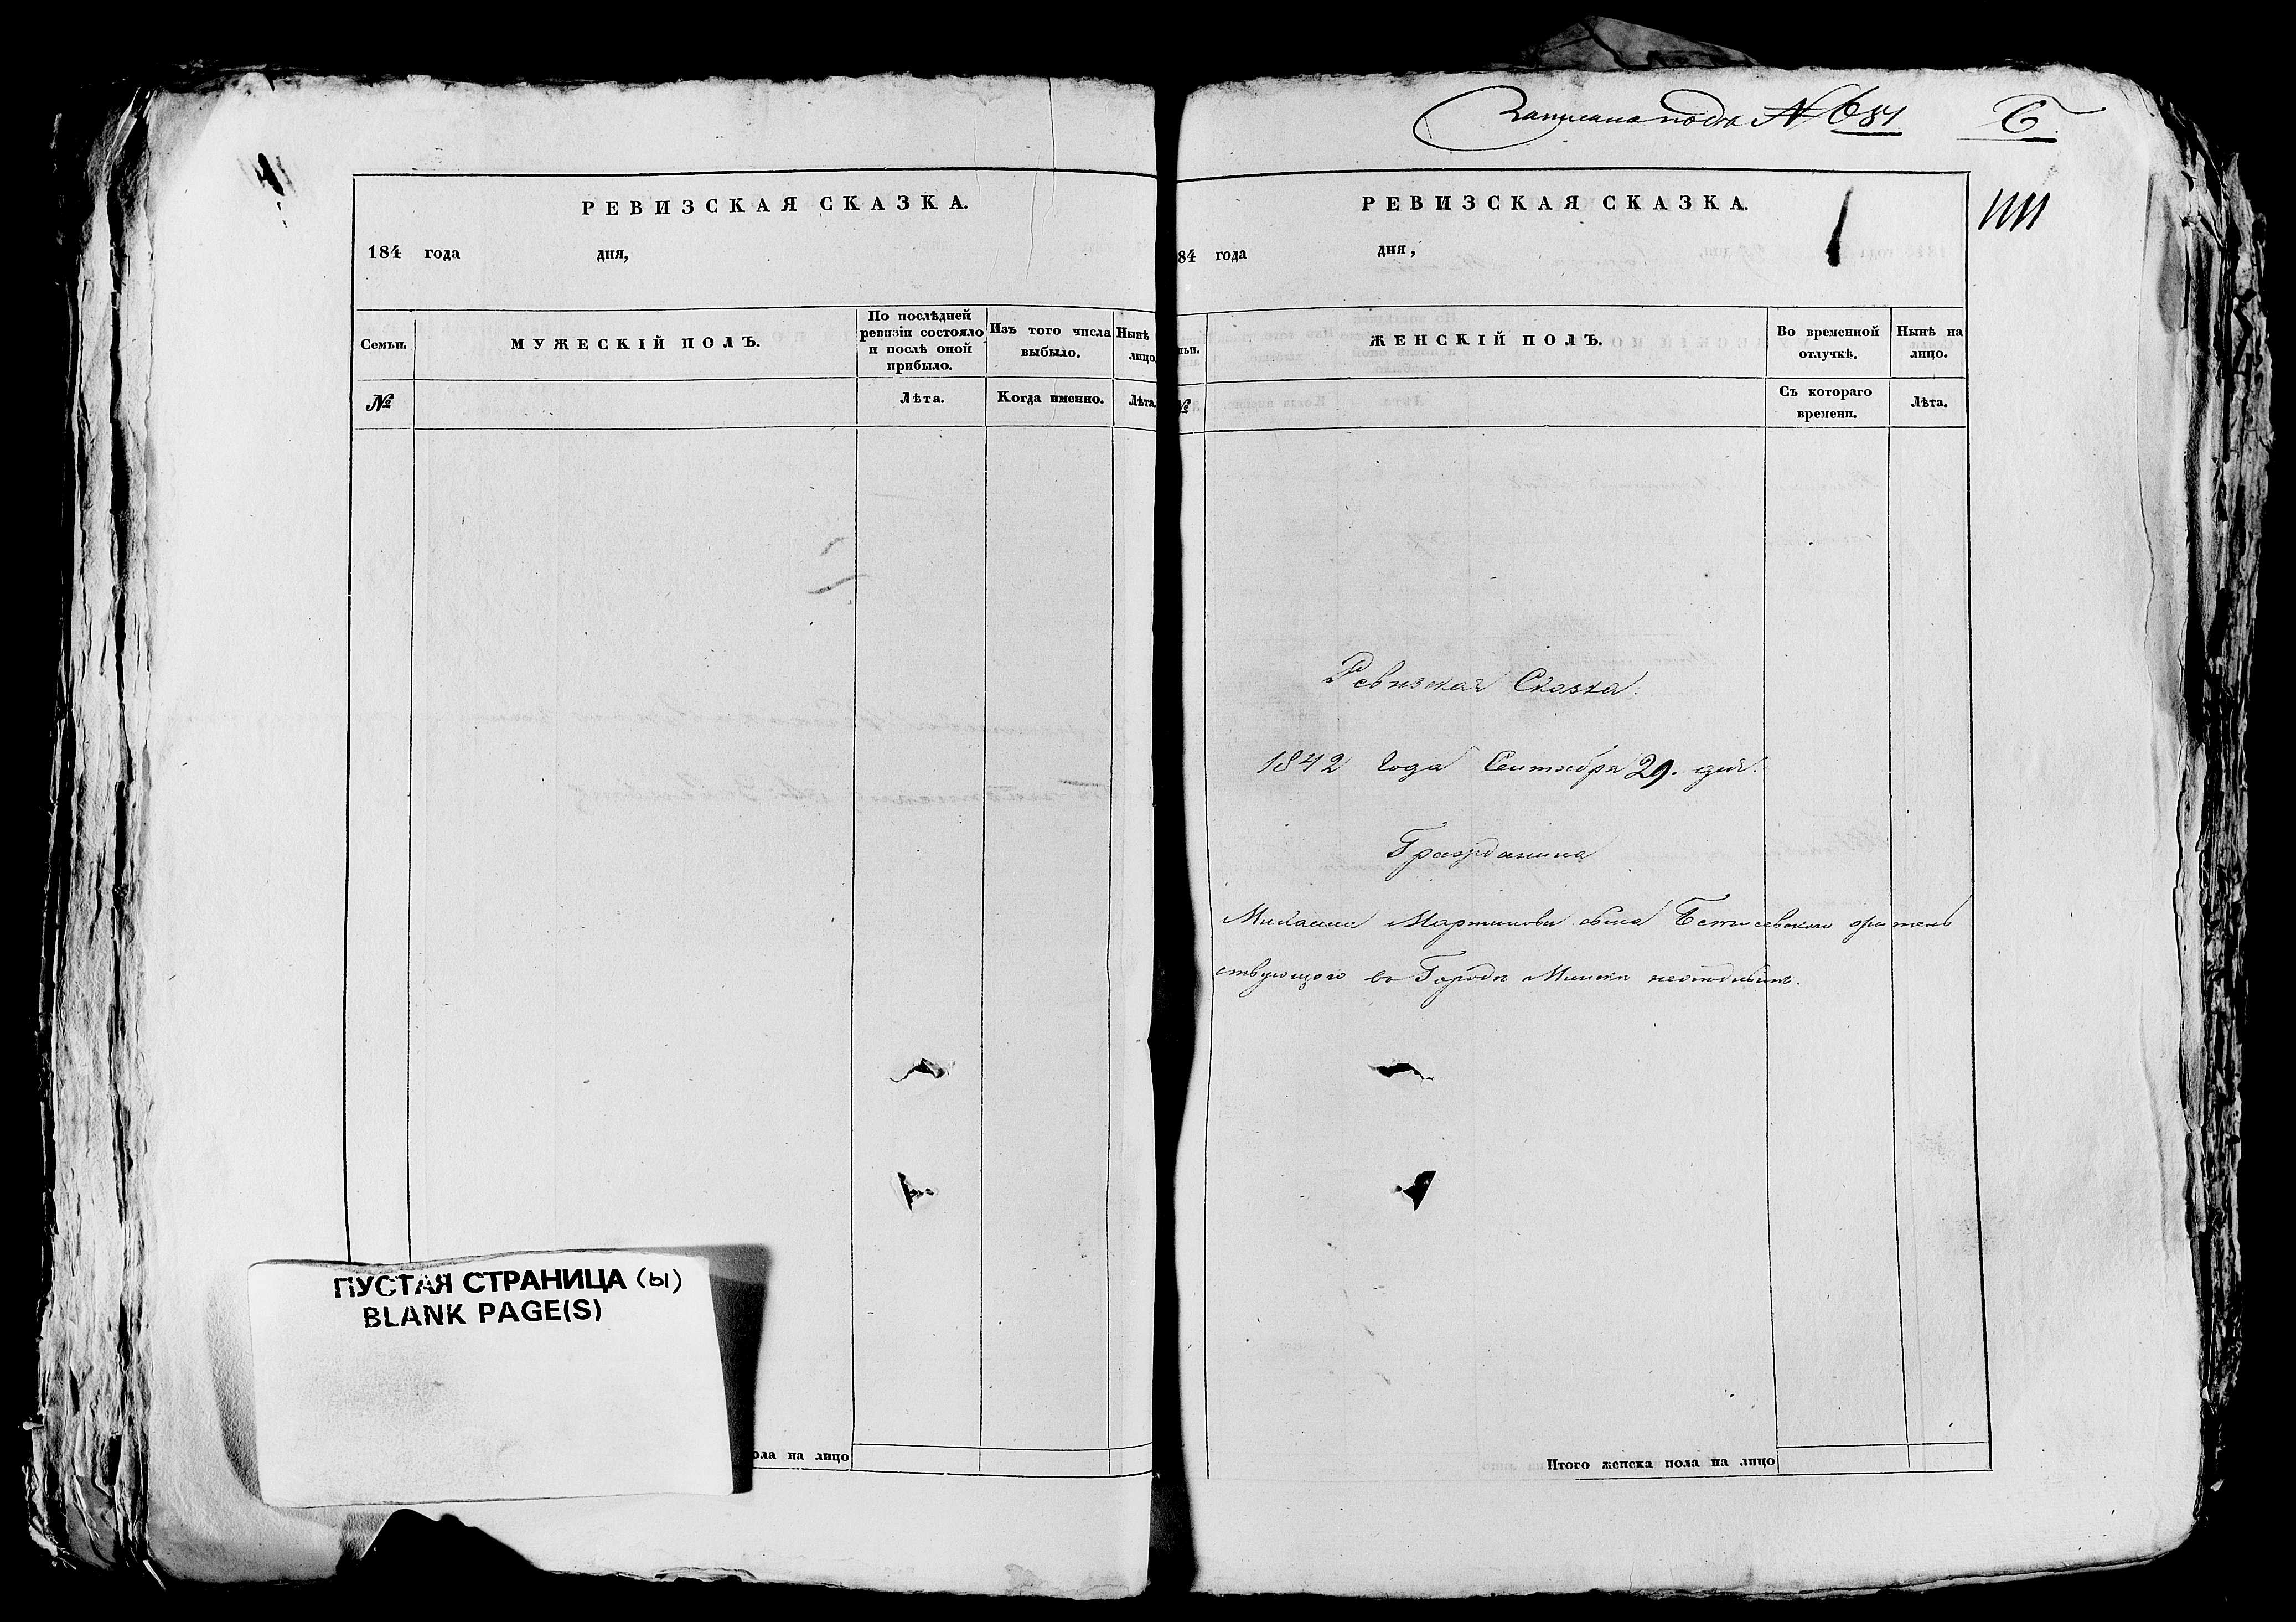 РЕВИЗСКАЯ СКАЗКА.
184 года дня,
Семьи.
МУЖЕСКІЙ ПОЛЪ.
По послѣдней
ревизіи состояло
и послѣ оной
прибыло.
Изъ того числа
выбыло.
Нынѣ
лицо
№
Лѣта.
Когда именно.
Лѣта.
ПУСТАЯ СТРАНИЦА (Ы)
BLANK PAGE(S)
ола на лицо
Записана подъ № 681
Б
РЕВИЗСКАЯ СКАЗКА.
84 года дня,
ьи.
ЖЕНСКІЙ ПОЛЪ.
Во временной
отлучкѣ.
Нынѣ на
лицо.
№
Съ котораго
времени.
Лѣта.
Ревизская Сказка.
1842 года Сентября 29. дня.
Гражданина
Михаила Мартинова сына жительствующаго
въ Городѣ Минскѣ
Итого женска пола на лицо